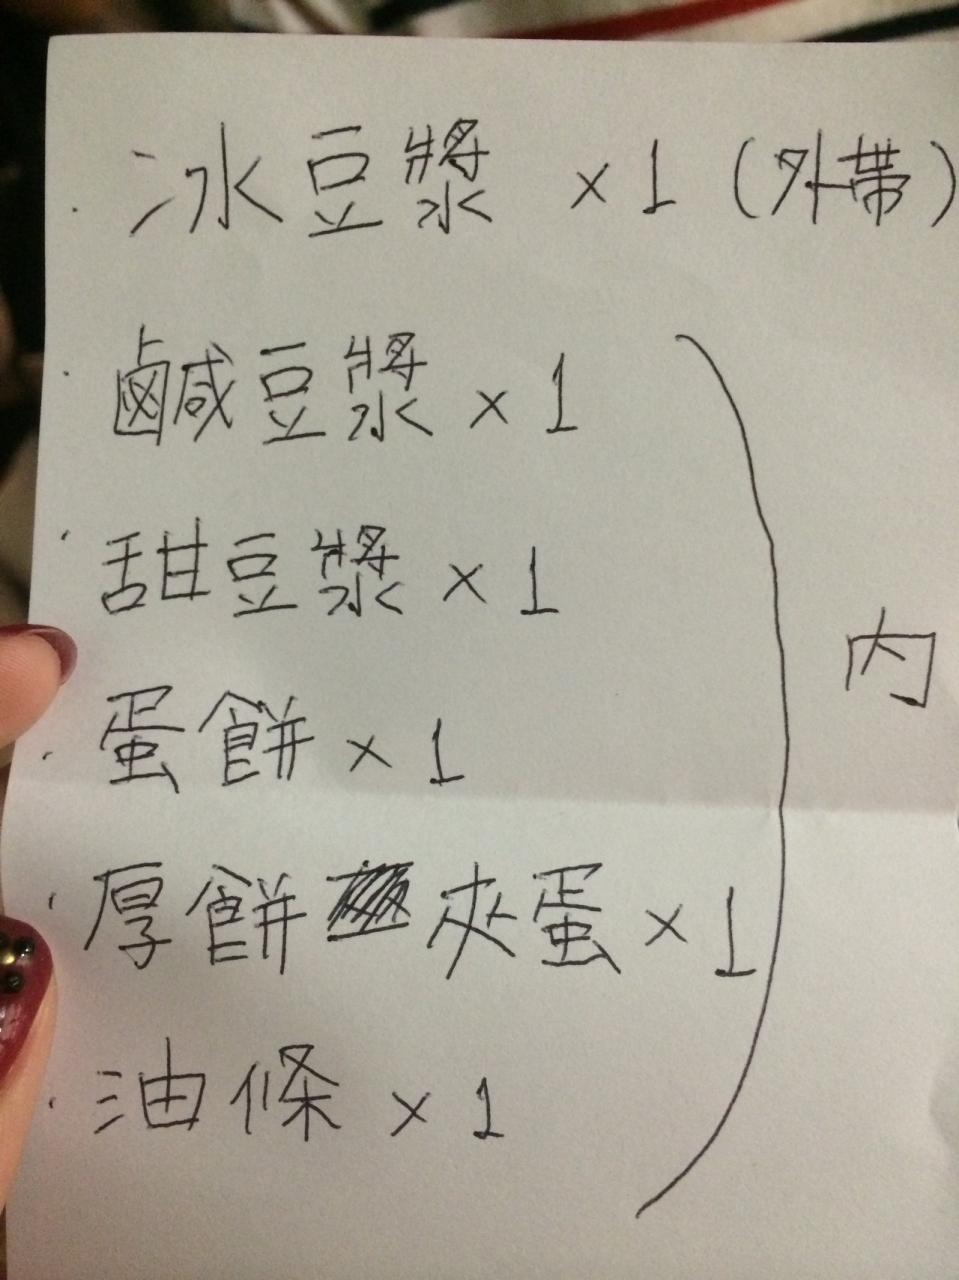 ·冰豆漿 x1 (外帶)
·鹹豆漿 x1
·甜豆漿 x1
·蛋餅 x1
·厚餅夾蛋 x1
·油條 x1
內